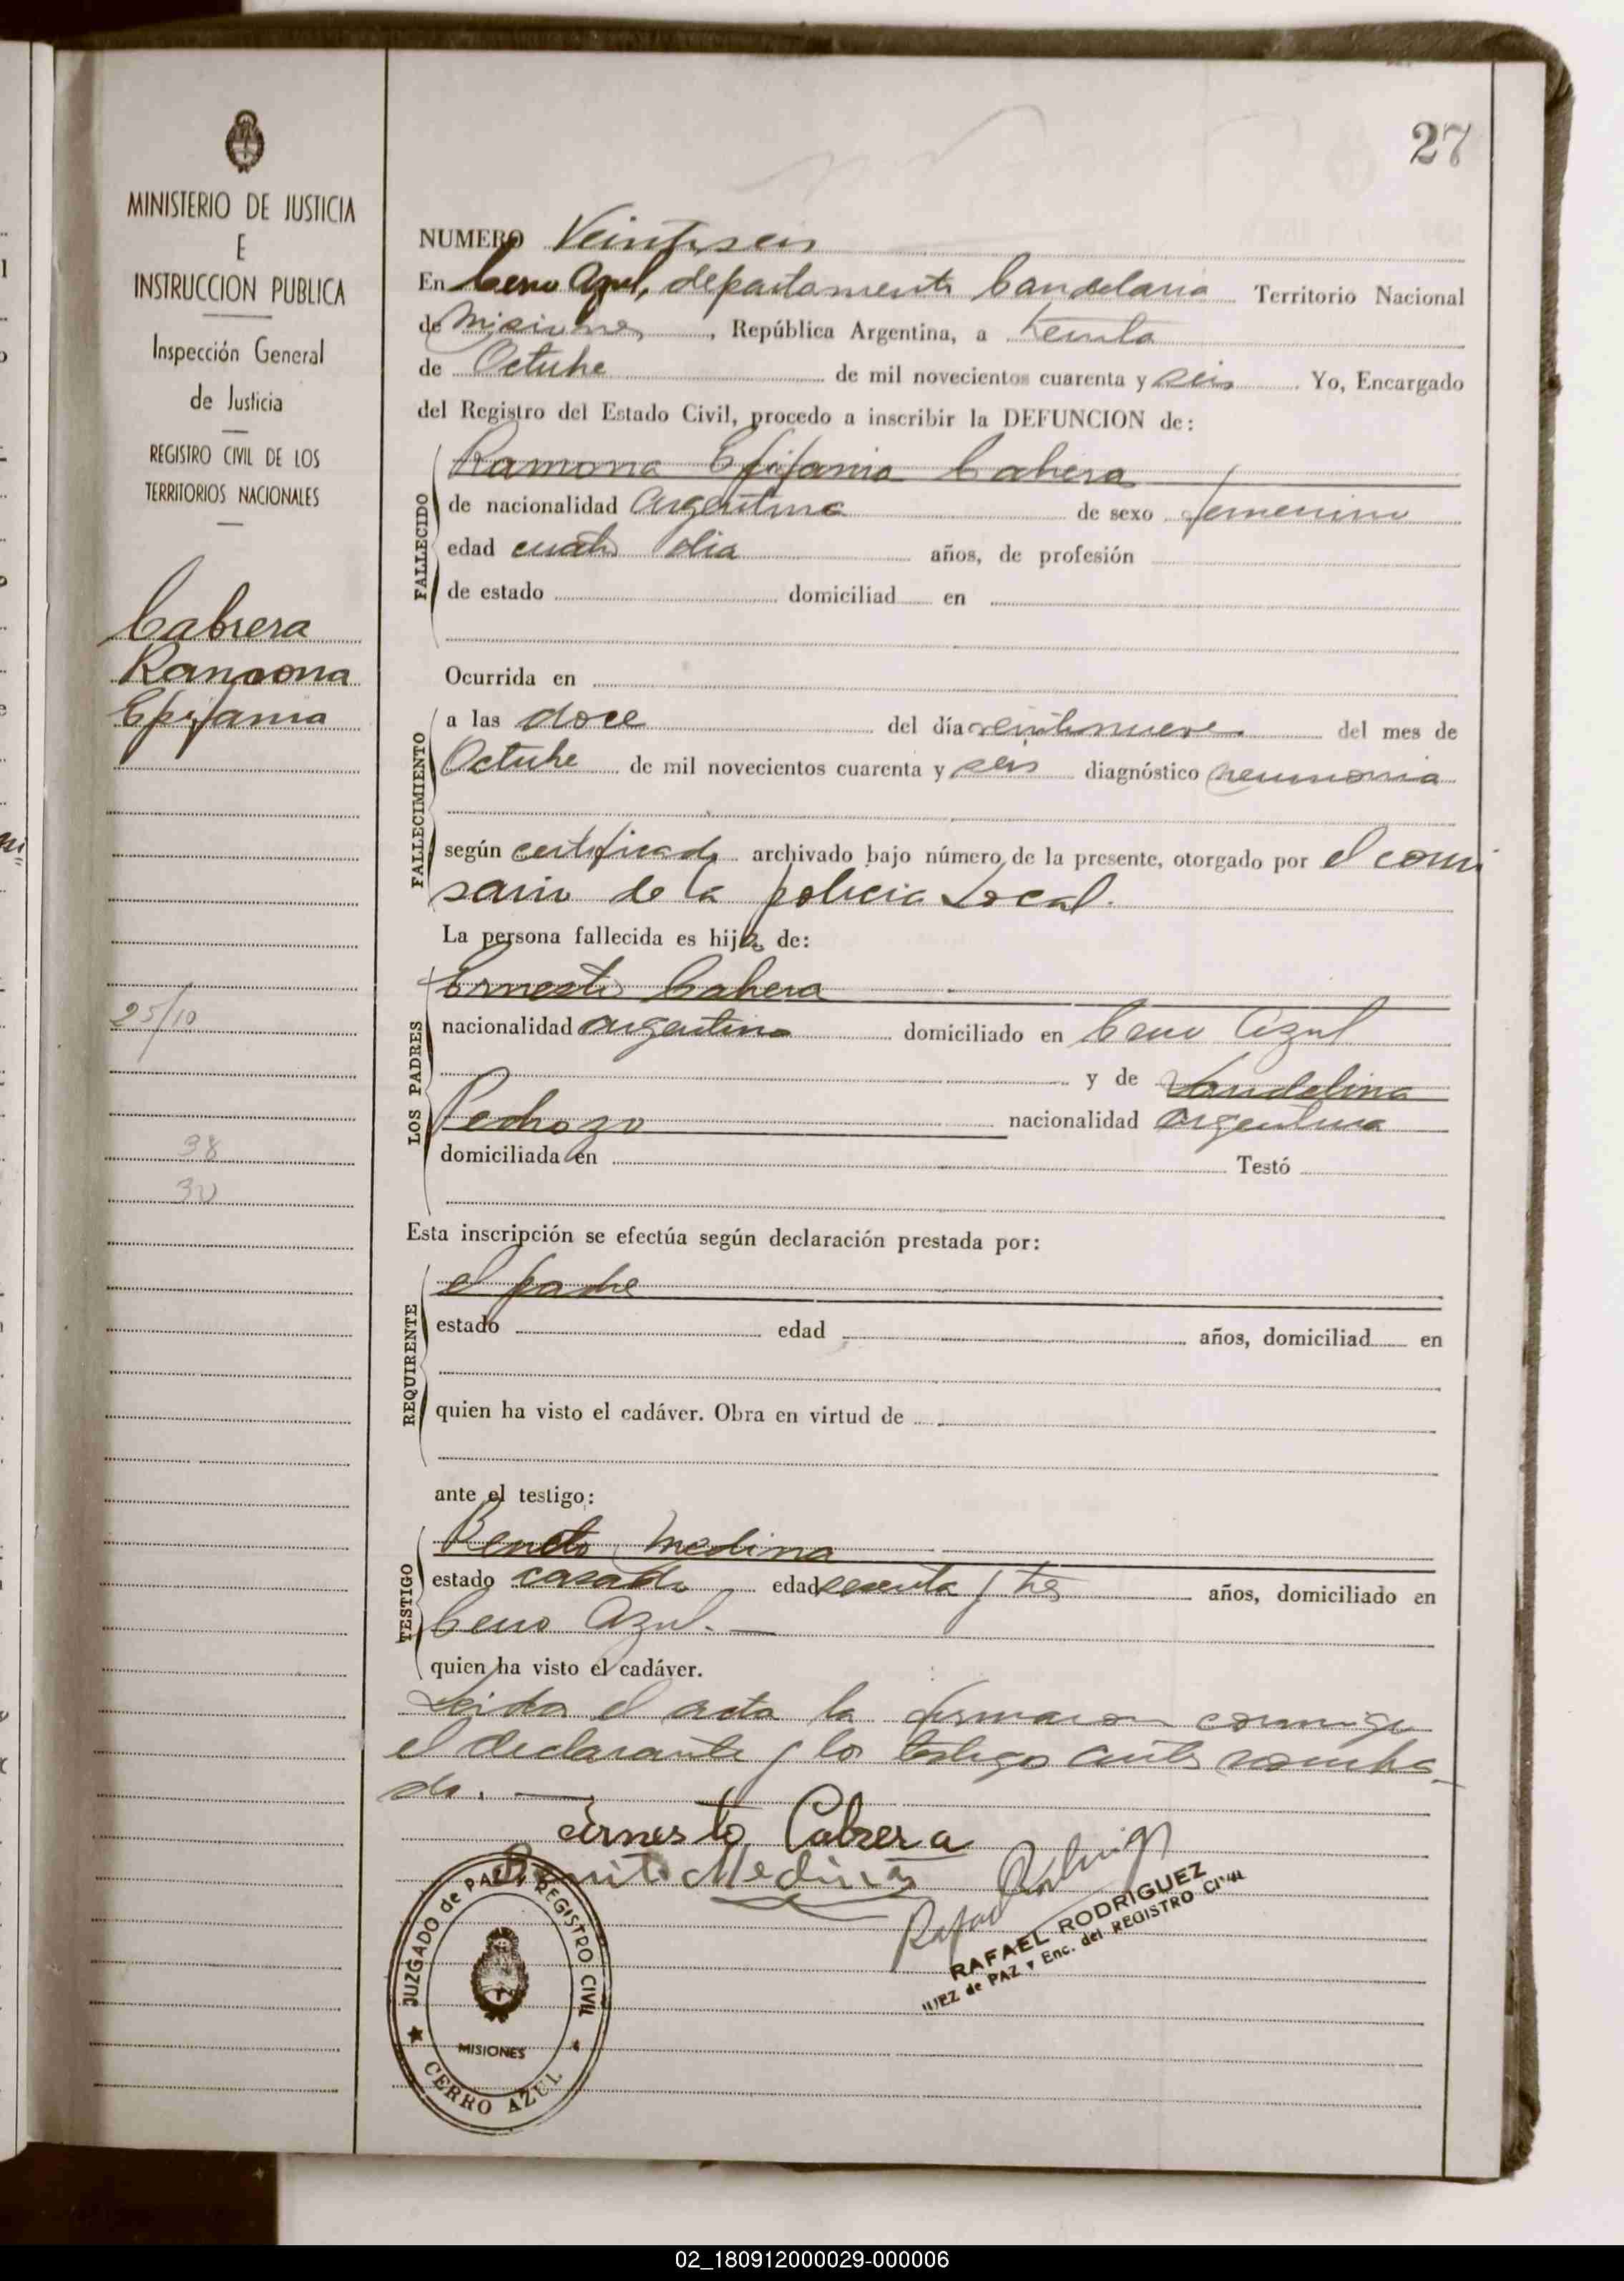 27
MINISTERIO DE JUSTICIA
E
INSTRUCCION PUBLICA
Inspección General
de Justicia
REGISTRO CIVIL DE LOS
TERRITORIOS NACIONALES
Cabrera
Ramona
Epifania
25/10
38
30
NUMERO Veintiseis
En Cerro Azul, departamento Candelaria Territorio Nacional
de Misiones, República Argentina, a treinta
de Octubre de mil novecientos cuarenta y seis. Yo, Encargado
del Registro del Estado Civil, procedo a inscribir la DEFUNCION de:
FALLECIDO
Ramona Epifania Cabrera
de nacionalidad argentina de sexo femenino
edad cuatro dia años, de profesión
de estado domiciliad en
Ocurrida en
FALLECIMIENTO
a las doce del día veintinueve del mes de
Octubre de mil novecientos cuarenta y seis diagnóstico neumonia
según certificado archivado bajo número de la presente, otorgado por el comi
sario de la policia Local.
La persona fallecida es hija de:
LOS PADRES
Ernesto Cabrera
nacionalidad argentino domiciliado en Cerro Azul
y de Vandelina
Pedrozo nacionalidad argentina
domiciliada en Testó
Esta inscripción se efectúa según declaración prestada por:
REQUIRENTE
el padre
estado edad años, domiciliad en
quien ha visto el cadáver. Obra en virtud de
ante el testigo:
TESTIGO
Benito Medina
estado casado edad sesenta y tres años, domiciliado en
Cerro Azul.
quien ha visto el cadáver.
Leida el acta la firmaron conmigo
el declarante y los testigo antes nombra
do.
Ernesto Cabrera
Benito Medina
Rafael Rodriguez
RAFAEL RODRIGUEZ
JUEZ de PAZ y Enc. del REGISTRO CIVIL
JUZGADO de PAZ y REGISTRO CIVIL
MISIONES
CERRO AZUL
02_180912000029-000006